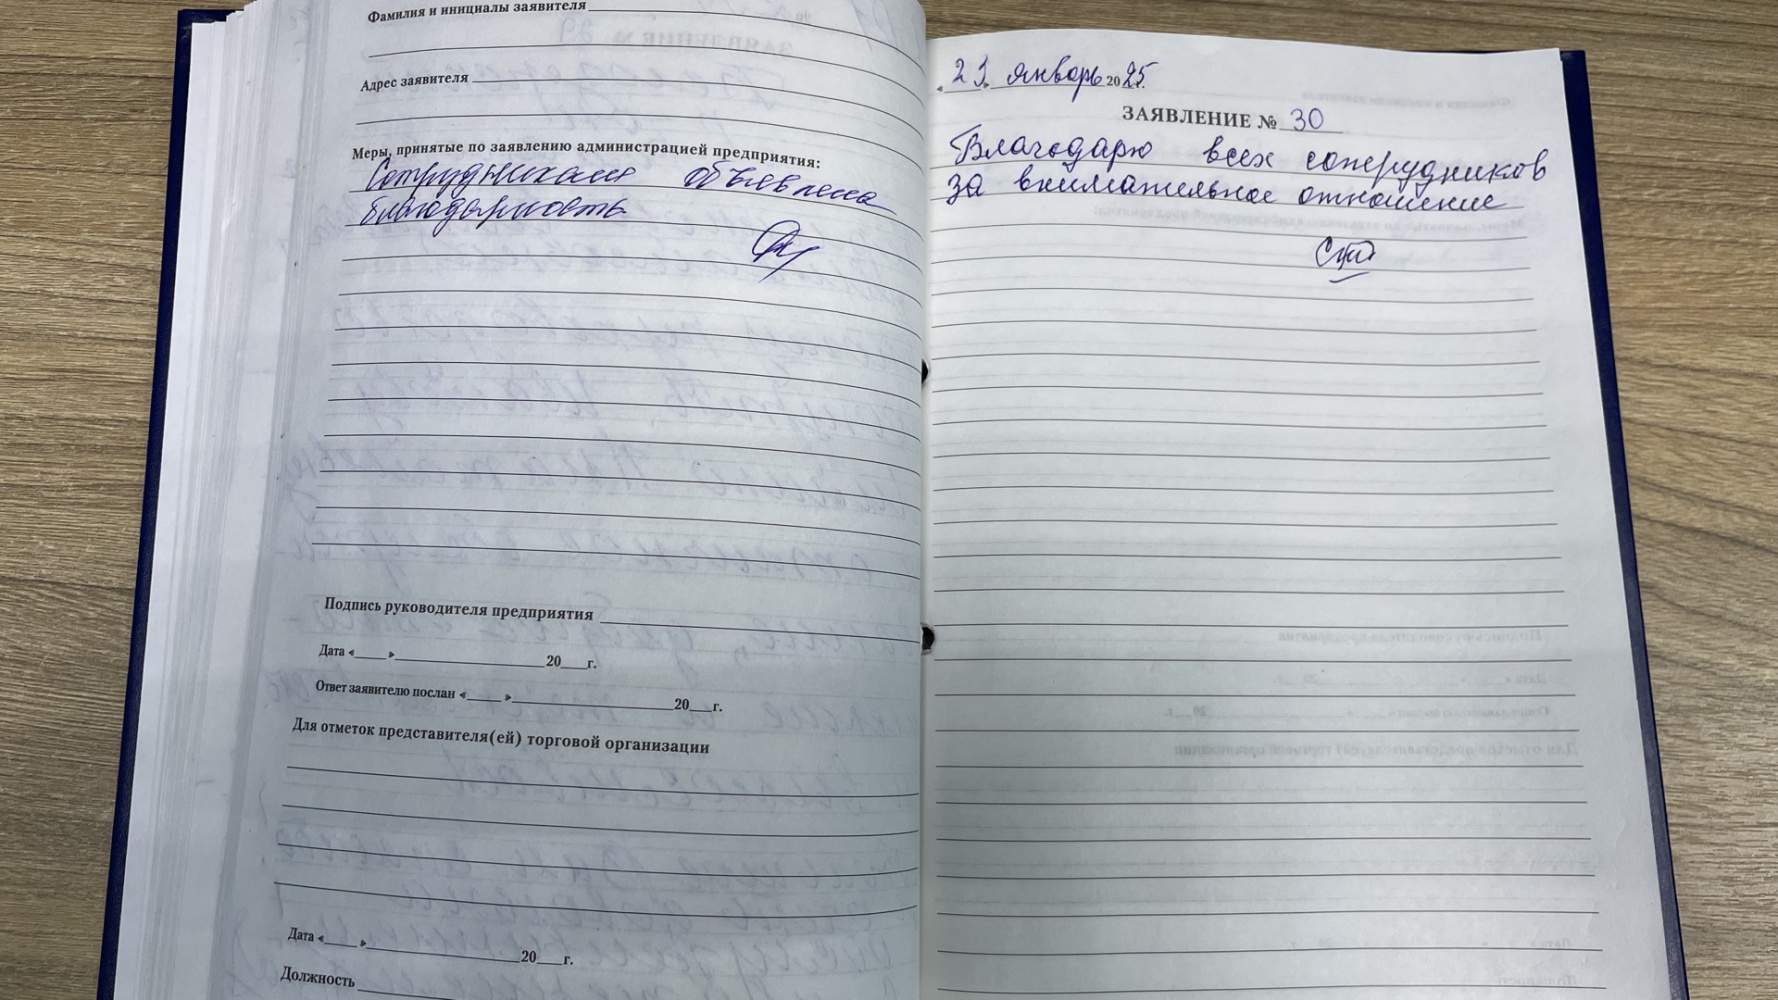 Фамилия и инициалы заявителя
Адрес заявителя
Меры, принятые по заявлению администрацией предприятия:
Сотрудникам объявлена
благодарность
Подпись руководителя предприятия
Дата «____» ____________ 20___г.
Ответ заявителю послан «____» ____________ 20___г.
Для отметок представителя(ей) торговой организации
Дата «____» ____________ 20___г.
Должность
«23» январь 2025г.
ЗАЯВЛЕНИЕ № 30
Благодарю всех сотрудников
за внимательное отношение